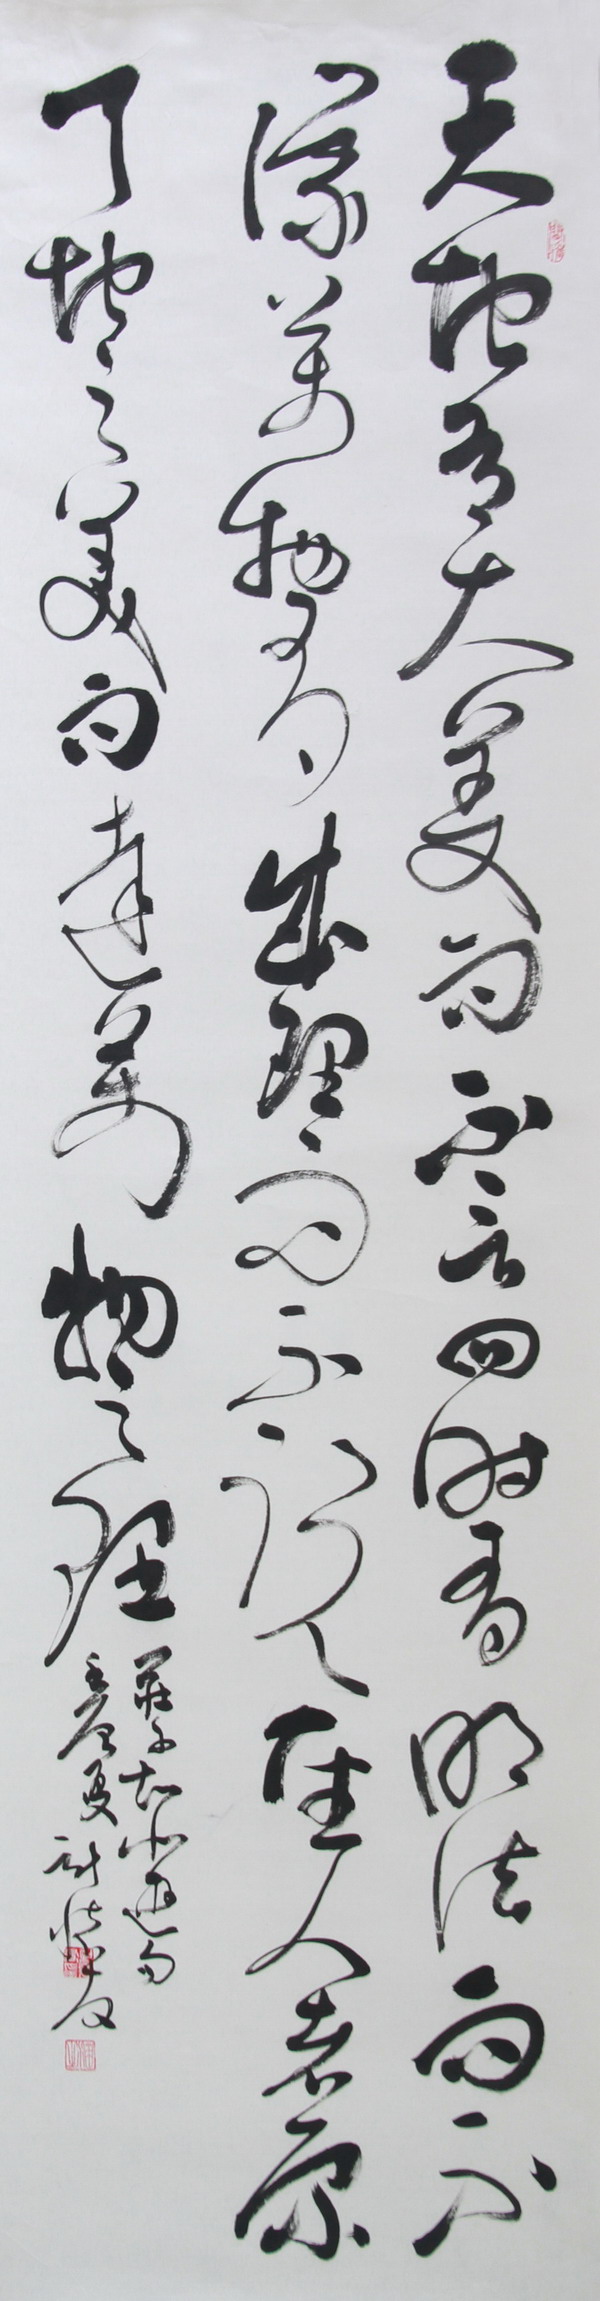 天地有大美而不言四时有明法而不
议万物有成理而不说圣人者原
天地之美而达万物之理
庄子知北游句